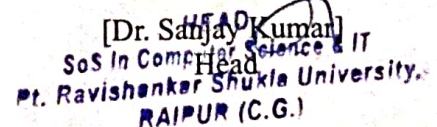 [Dr. Sanjay Kumar]
HEAD
Head
SoS In Computer Science & IT
Pt. Ravishankar Shukla University,
RAIPUR (C.G.)